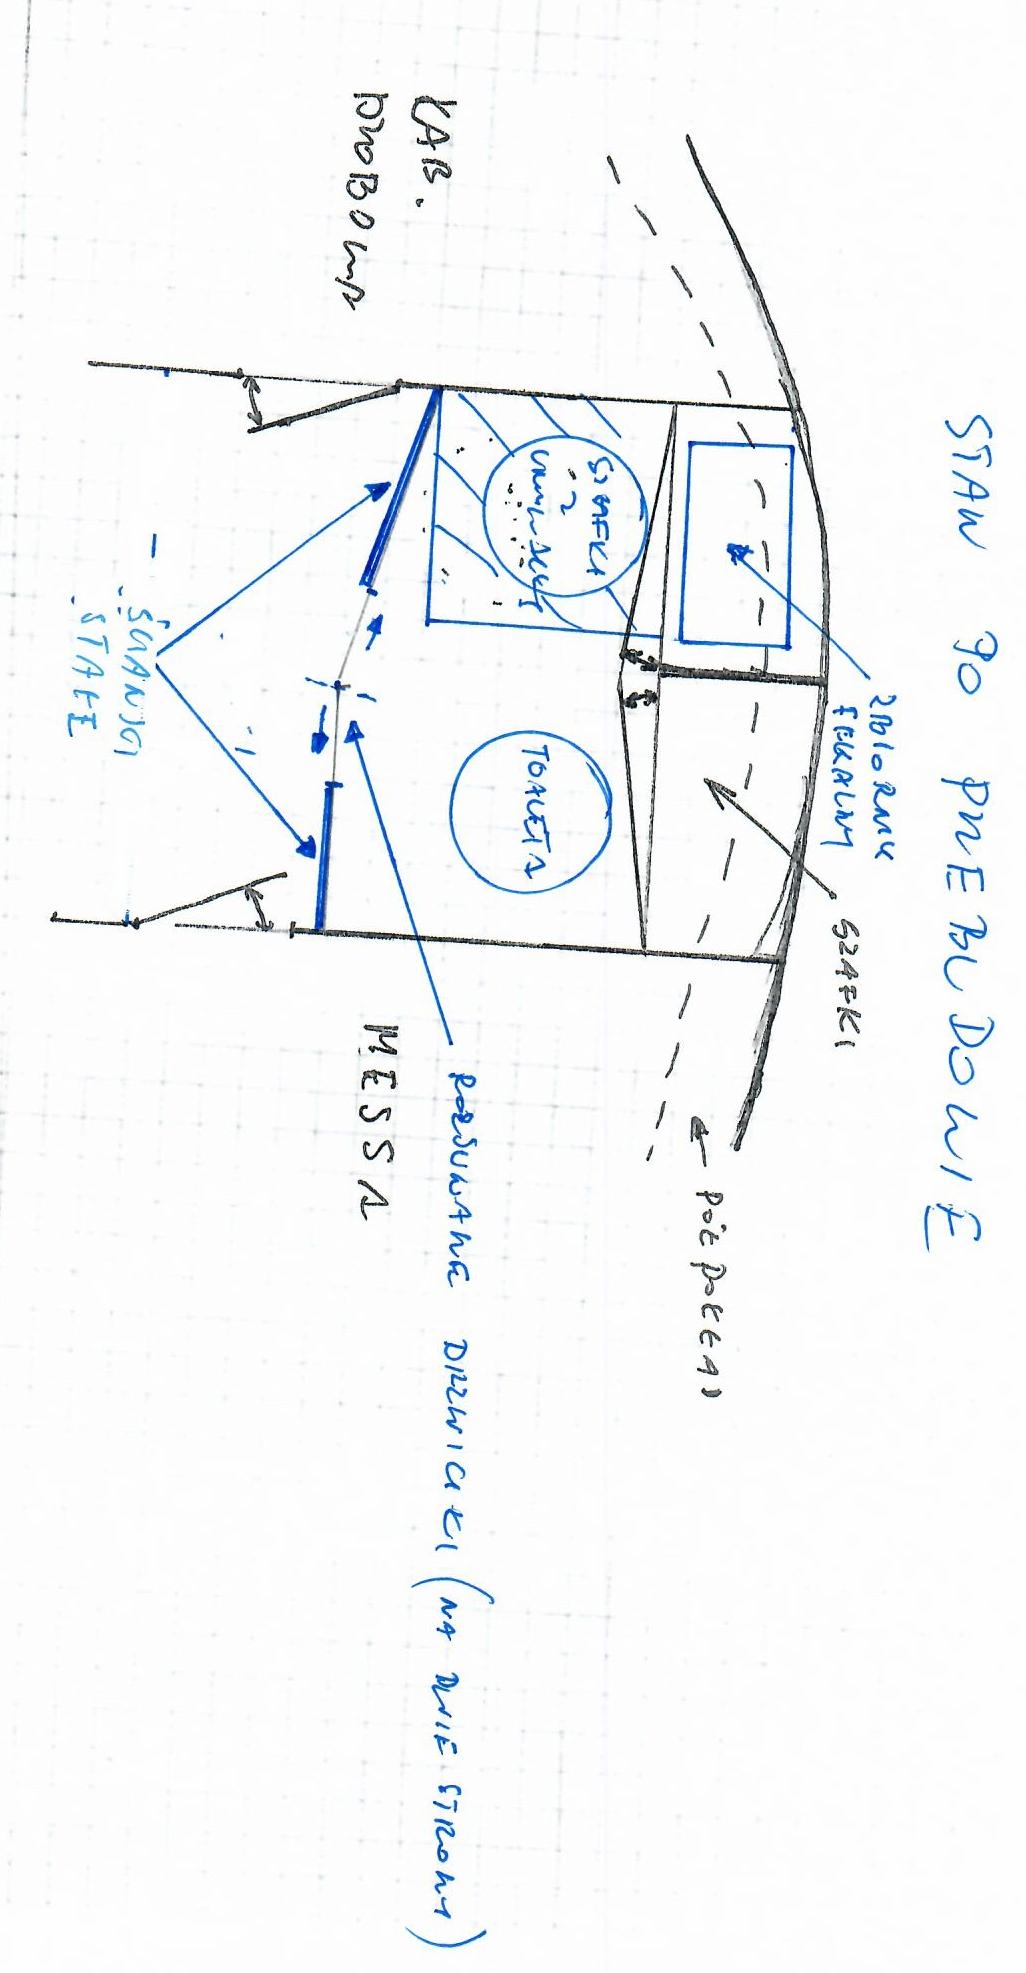 STAN PO PRZEBUDOWIE
ZBIORNIK
FEKALNY
SZAFKI
← PÓŁPOKŁAD
SZAFKA
Z
UMYWALKĄ
TOALETA
KAB.
DZIOBOWA
MESSA
ROZSUWANE DRZWICZKI (NA DWIE STRONY)
- ŚCIANKI
STAŁE